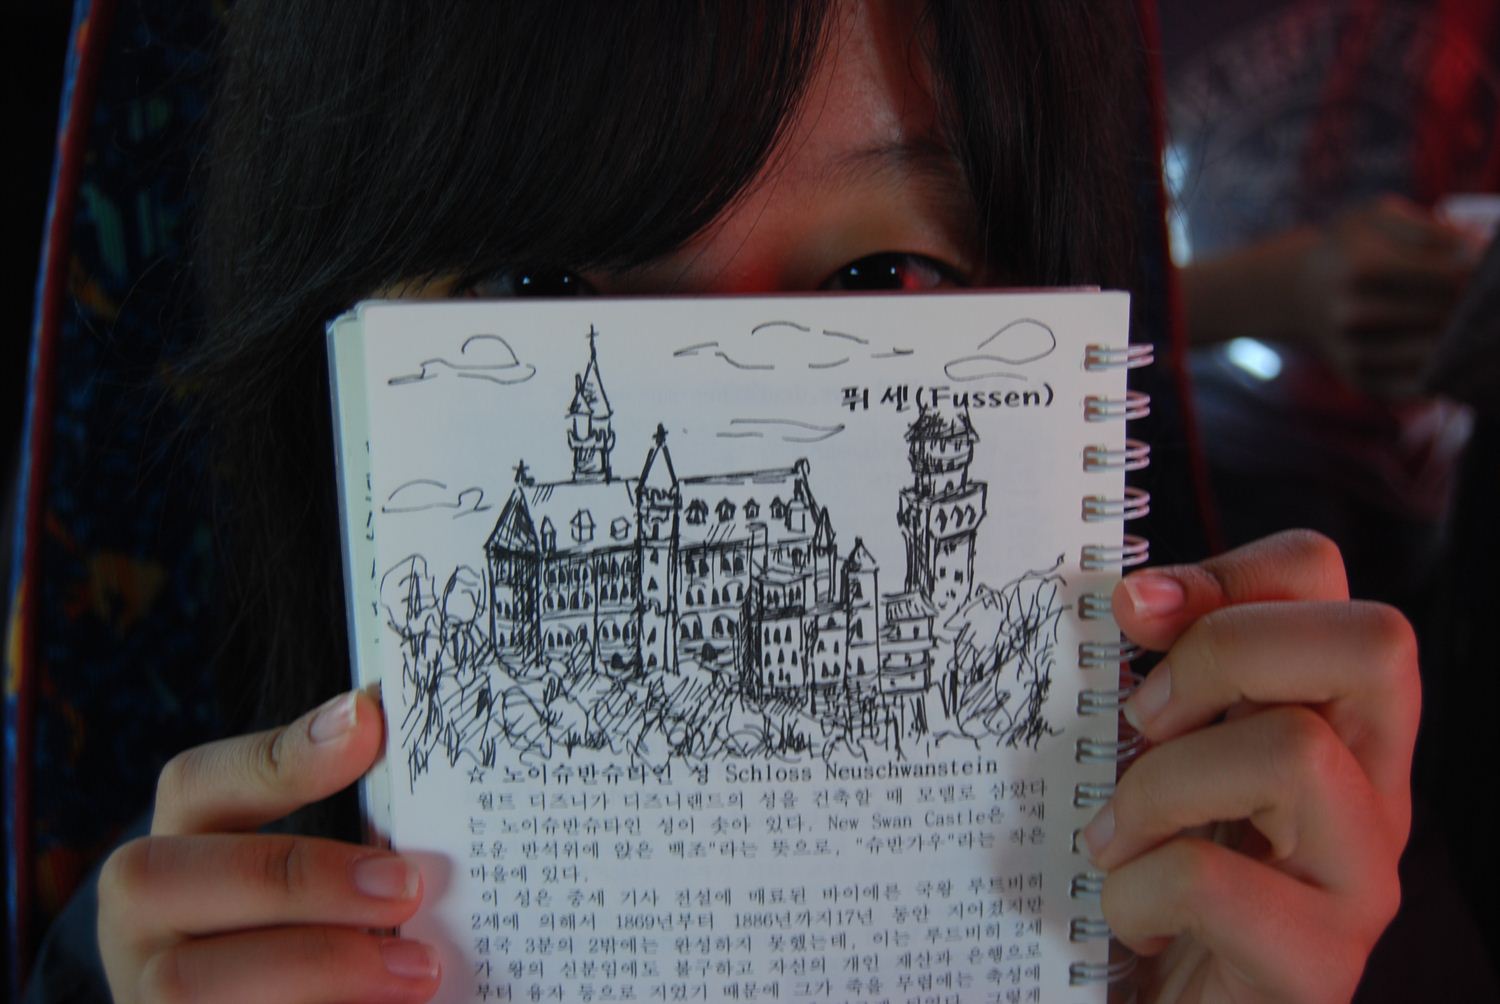 퓌센(Fussen)
☆ 노이슈반슈타인 성 Schloss Neuschwanstein
월트 디즈니가 디즈니랜드의 성을 건축할 때 모델로 삼았다
는 노이슈반슈타인 성이 솟아 있다. New Swan Castle은 "새
로운 반석위에 앉은 백조"라는 뜻으로, "슈반가우"라는 작은
마을에 있다.
이 성은 중세 기사 전설에 매료된 바이에른 국왕 루트비히
2세에 의해서 1869년부터 1886년까지17년 동안 지어졌지만
결국 3분의 2밖에는 완성하지 못했는데, 이는 루드비히 2세
가 왕의 신분임에도 불구하고 자신의 개인 재산과 은행으로
부터 융자 등으로 지었기 때문에 그가 죽을 무렵에는 축성에